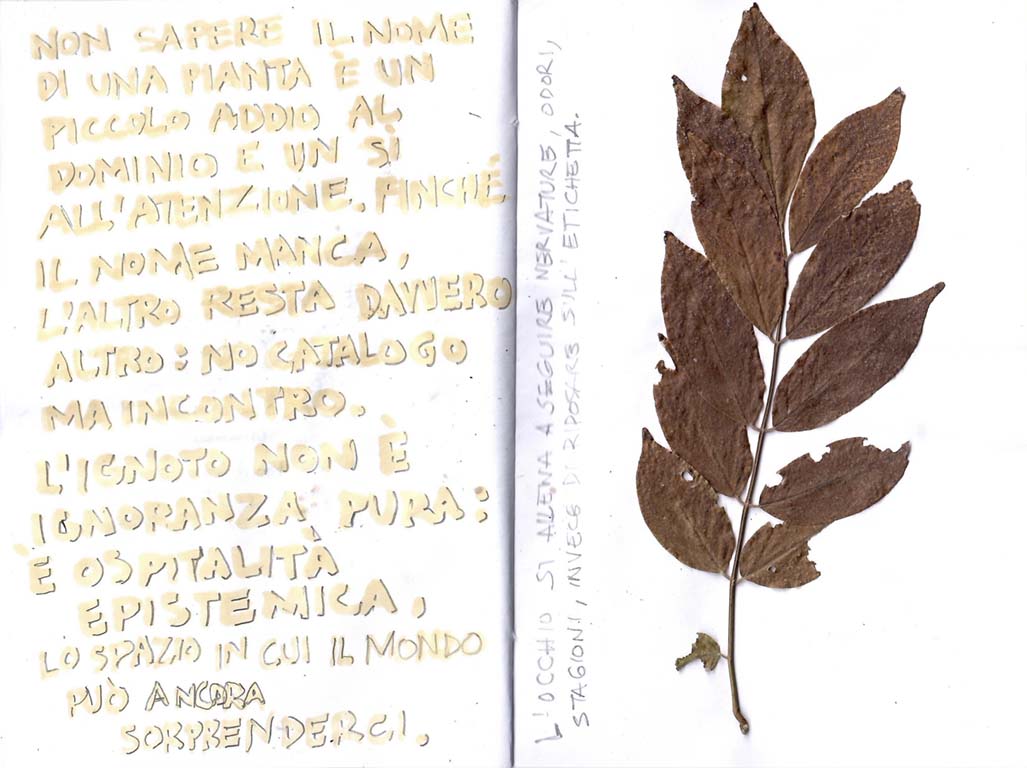 NON SAPERE IL NOME
DI UNA PIANTA È UN
PICCOLO ADDIO AL
DOMINIO E UN SÌ
ALL'ATENZIONE. FINCHÉ
IL NOME MANCA,
L'ALTRO RESTA DAVVERO
ALTRO: NO CATALOGO
MA INCONTRO.
L'IGNOTO NON È
IGNORANZA PURA:
È OSPITALITÀ
EPISTEMICA,
LO SPAZIO IN CUI IL MONDO
PUÒ ANCORA
SORPRENDERCI.
L'OCCHIO SI ALLENA A SEGUIRE NERVATURE, ODORI,
STAGIONI, INVECE DI RIPOSARE SULL'ETICHETTA.